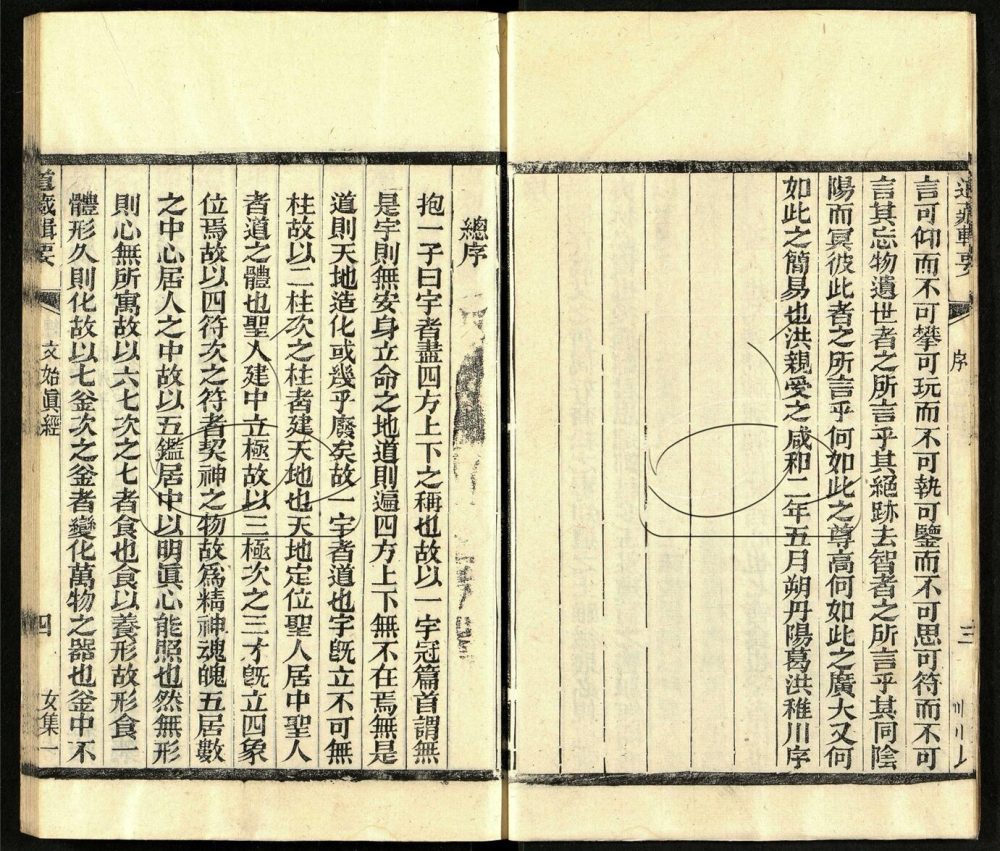 道藏輯要
序
三
言可仰而不可攀可玩而不可執可鑒而不可思可符而不可
言其忘物遺世者之所言乎其絕跡去智者之所言乎其同陰
陽而冥彼此者之所言乎何如此之尊高何如此之廣大又何
如此之簡易也洪親愛之咸和二年五月朔丹陽葛洪稚川序
總序
抱一子曰宇者盡四方上下之稱也故以一宇冠篇首謂無
是宇則無安身立命之地道則遍四方上下無不在焉無是
道則天地造化或幾乎廢矣故一宇者道也宇既立不可無
柱故以二柱次之柱者建天地也天地定位聖人居中聖人
者道之體也聖人建中立極故以三極次之三才既立四象
位焉故以四符次之符者契神之物故爲精神魂魄五居數
之中心居人之中故以五鑑居中以明眞心能照也然無形
則心無所寓故以六七次之七者食也食以養形故形食一
體形久則化故以七釜次之釜者變化萬物之器也釜中不
道藏輯要
文始眞經
四
女集一